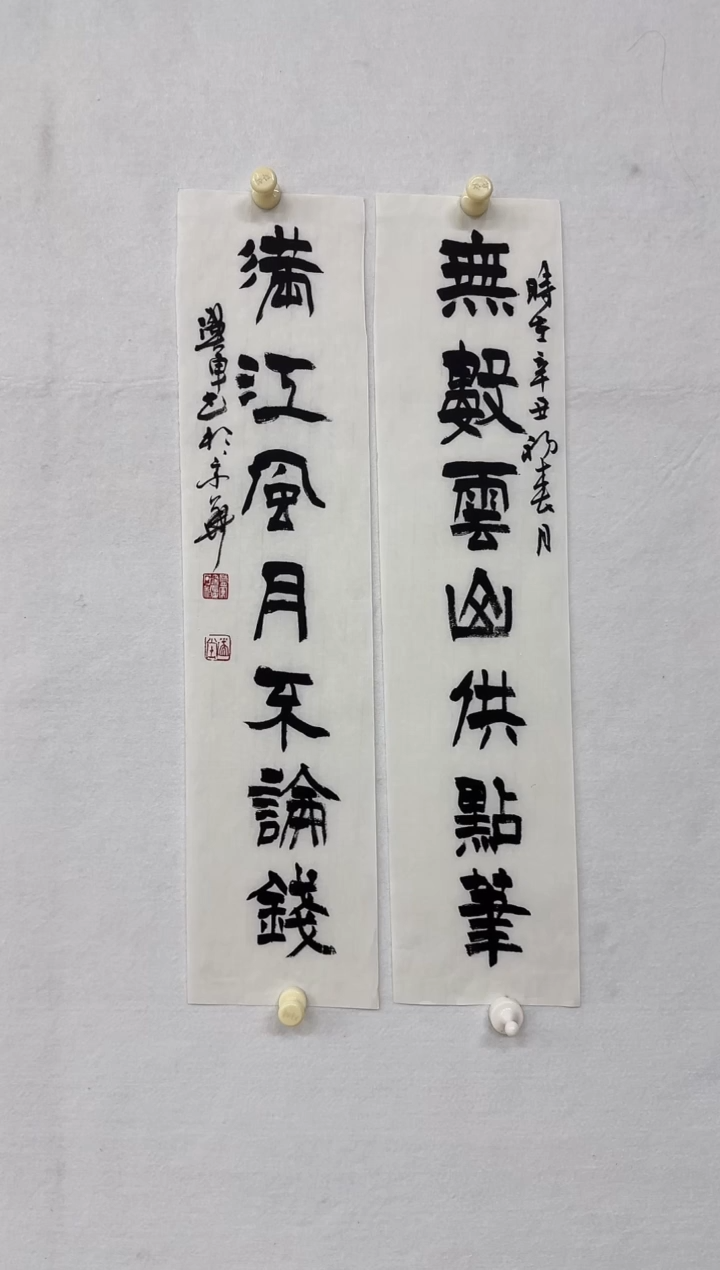 時在辛丑初春月
無數雲山供點筆
滿江風月不論錢
興軍書於京華